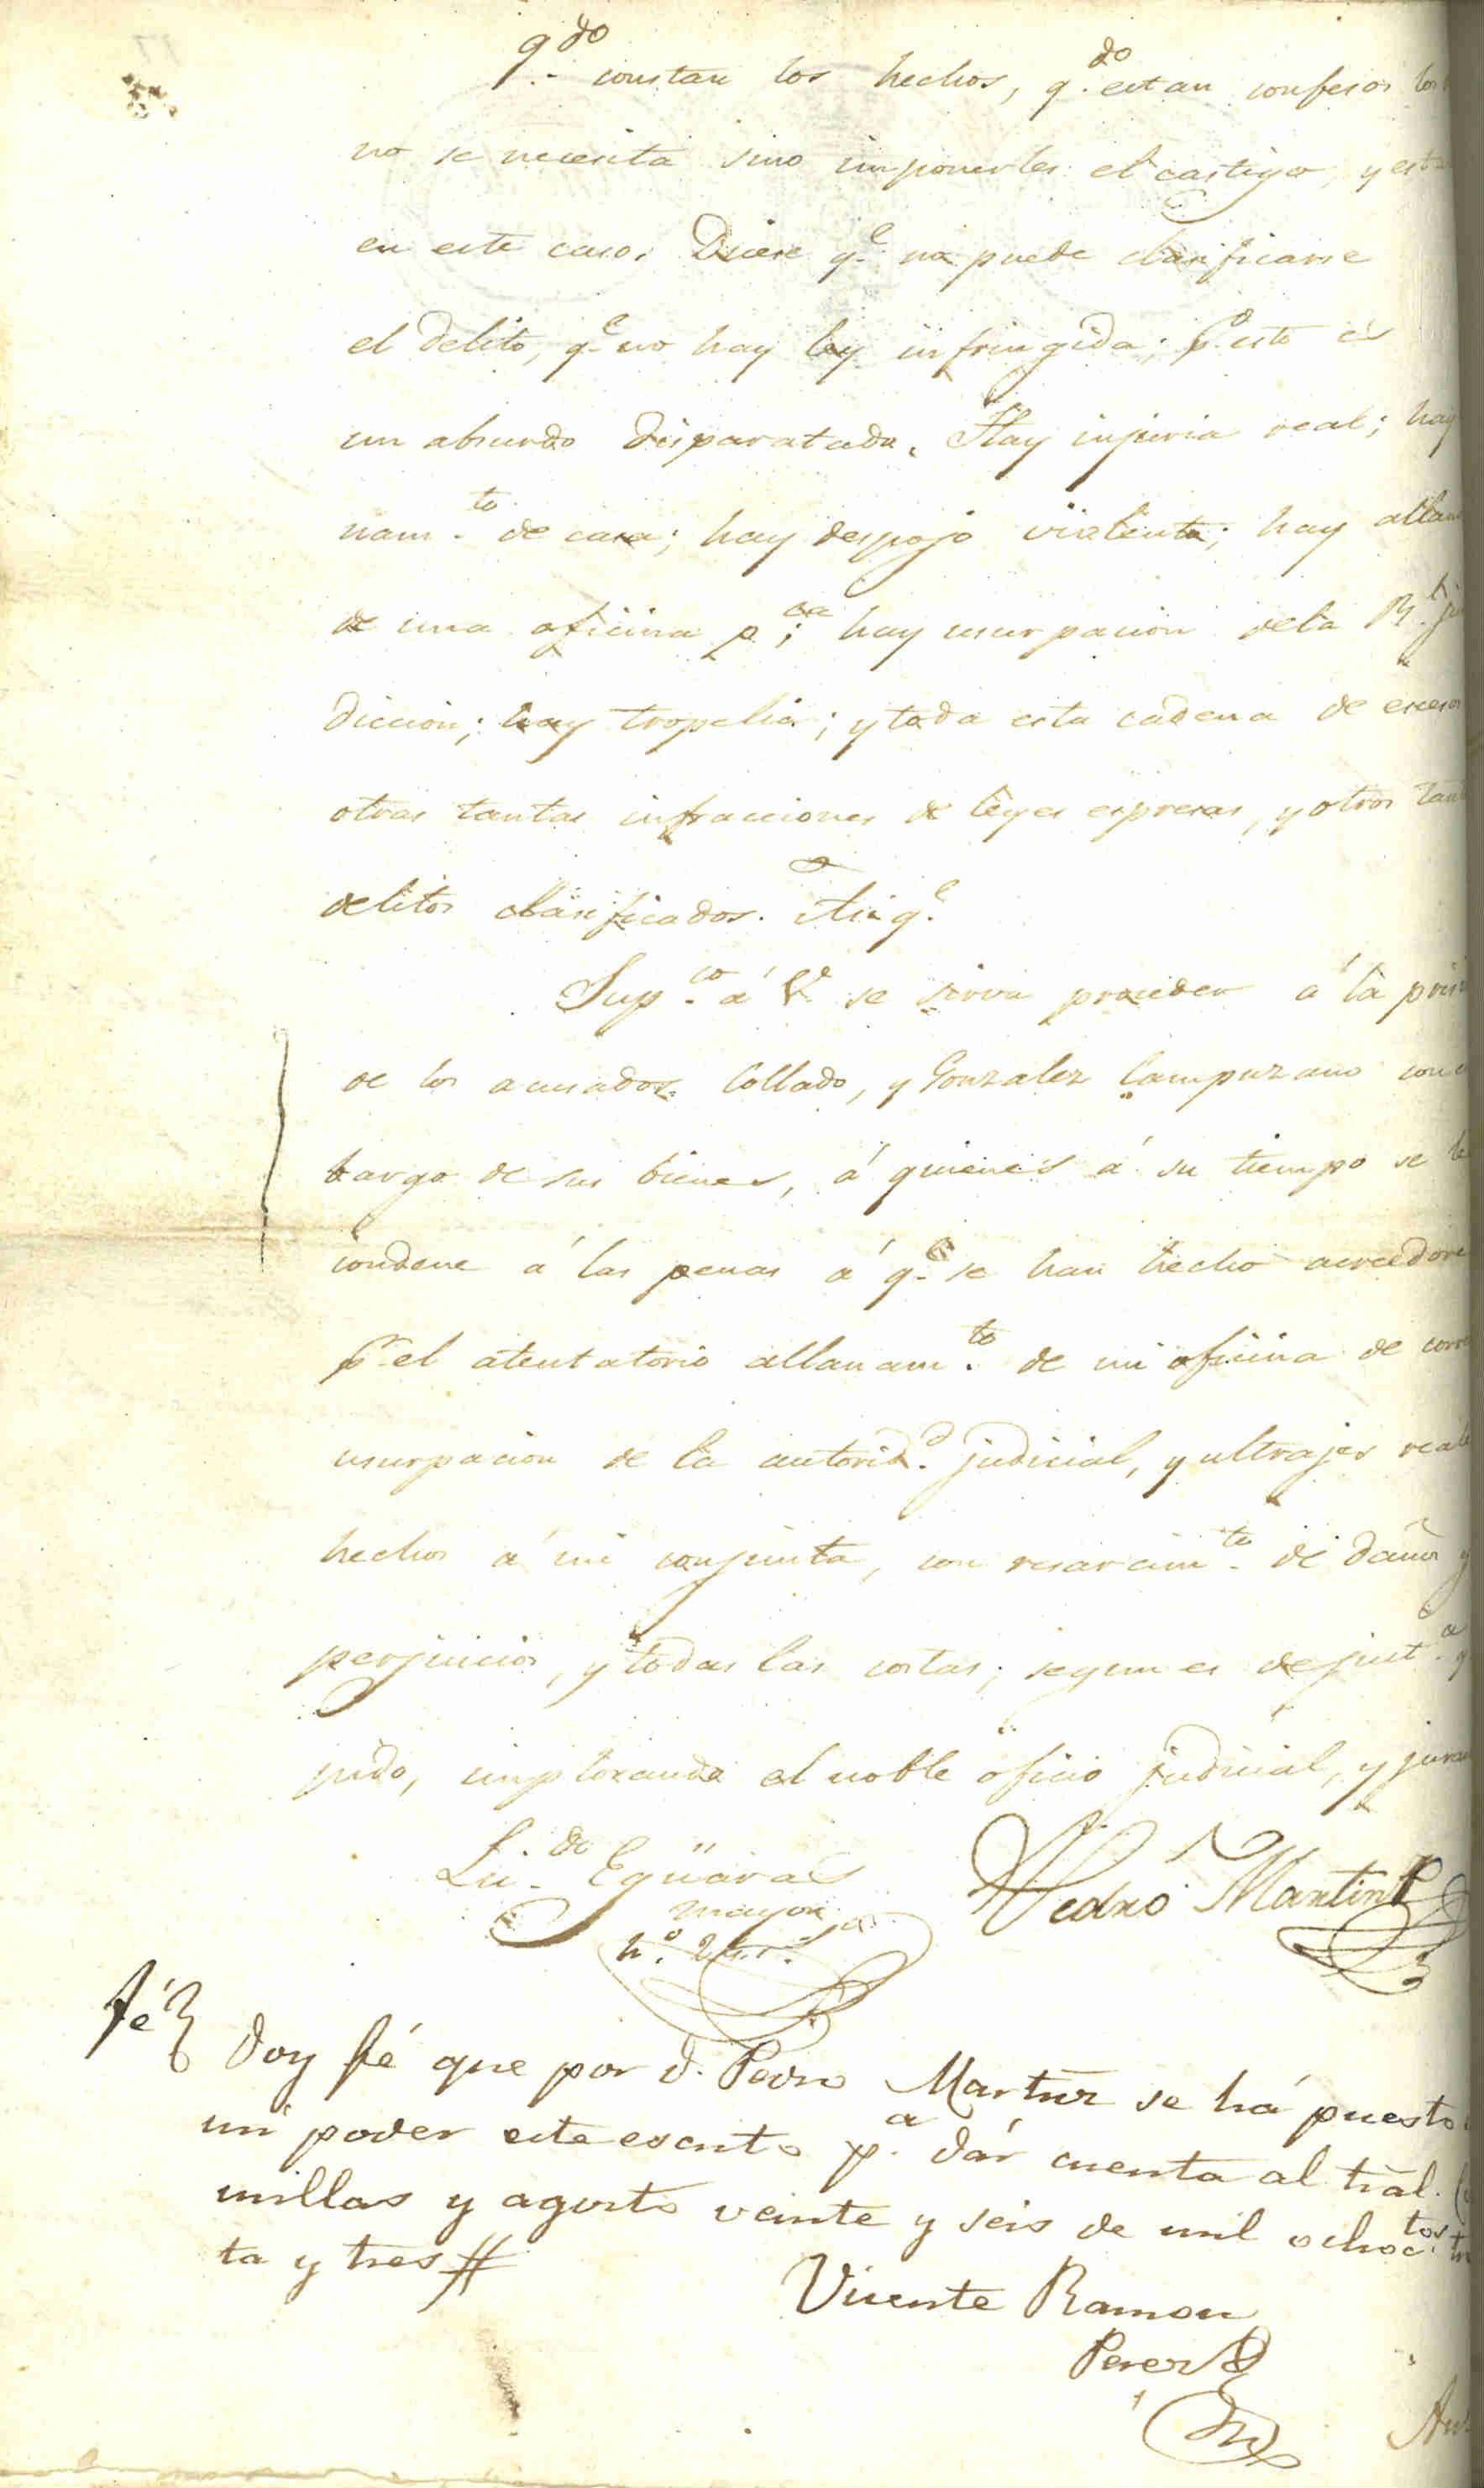 q.do constan los hechos, q.do estan confesos los
no se necesita sino imponerles el castigo, y est
en este caso. Dicese q.e no puede clasificarse
el delito, q.e no hay ley infringida; p.o esto és
un absurdo disparatado. Hay injuria real; hay
nam.to de casa; hay despojo violento; hay allan
de una oficina p.ca; hay usurpacion dela R.l ju
diccion; hay tropelia; y toda esta cadena de escesos
otras tantas infracciones de leyes espresas, y otros tan
delitos clasificados. Asi q.e
Sup.co á V. se sirva proceder á la pris
de los acusados Collado, y Gonzalez Campuzano con
bargo de sus bienes, á quienes á su tiempo se le
condene á las penas á q.e se han hecho acreedore
p.r el atentatorio allanam.to de mi oficina de corre
usurpacion de la autorid.d judicial, y ultrajes reale
hechos á mi conjunta, con resarcim.to de daños y
perjuicios, y todas las costas; segun es de just.a q
pido, implorando el noble oficio judicial, y juro
Lic.do Egüaras
mayor
h.s 24 r.s
Pedro Martinz
Fé
Doy fé que por d. Pedro Martnz se há puesto
mi poder este escrito p.a dár cuenta al tràl.
millas y agosto veinte y seis de mil ochoc.tos tr
ta y tres
Vicente Ramon
Perez